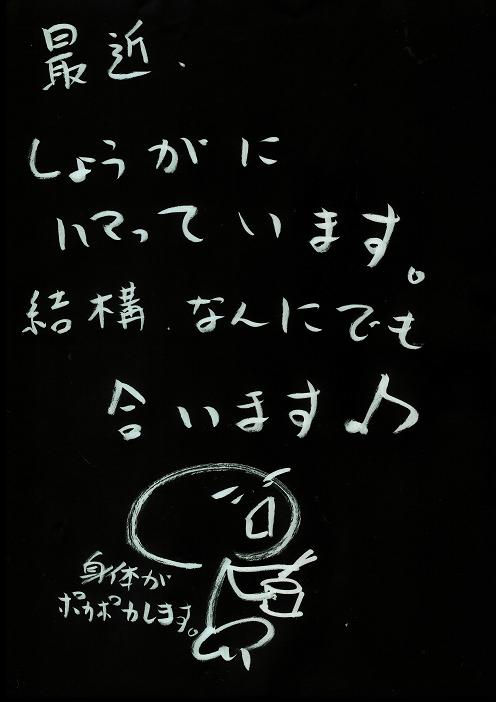 最近、
しょうがに
ハマっています。
結構、なんにでも
合います♪
身体が
ポカポカします。